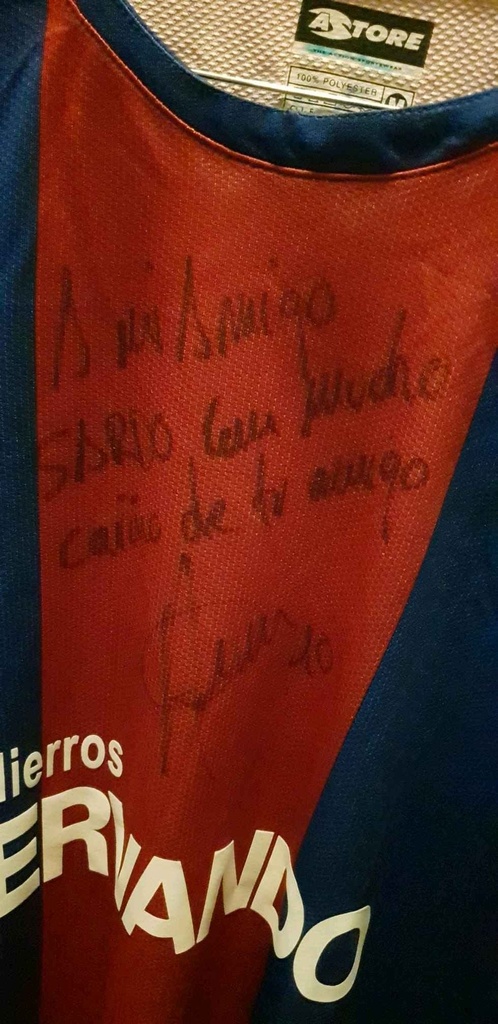 ASTORE
100% POLYESTER
M
A mi Amigo
con mucho
cariño de tu amigo
10
Hierros
ERNANDO